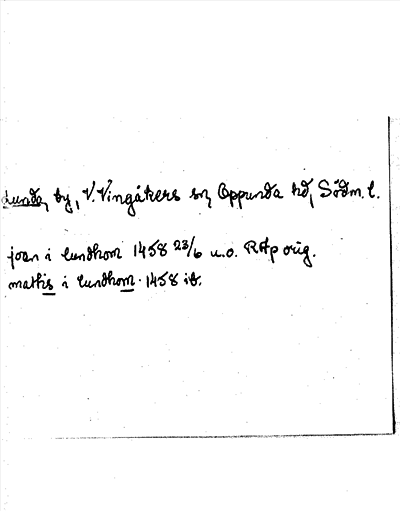 Lunda, by, V. Vingåkers sn, Oppunda hd, Södm. l.
joan i lundhom 1458 23/6 u.o. RAp orig.
mathis i lundhom. 1458 ib.